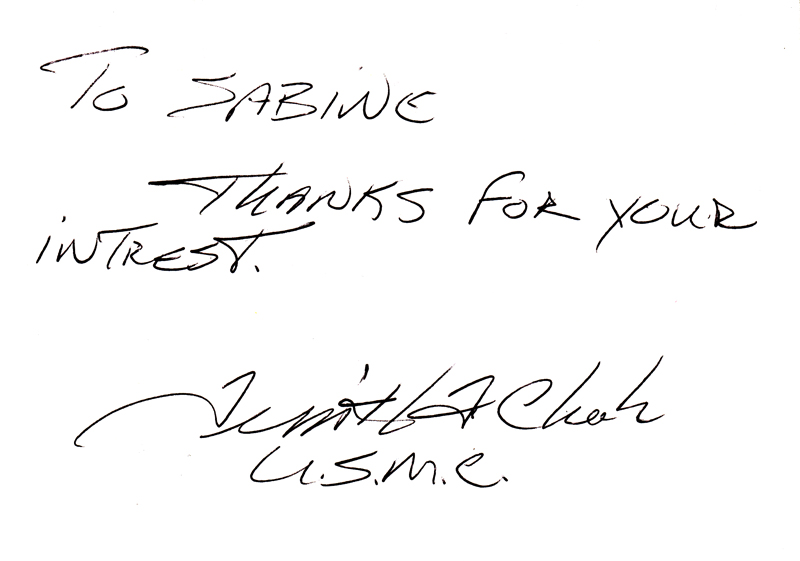 To SABINE
THANKS FOR YOUR
iNTREST.
U.S.M.C.